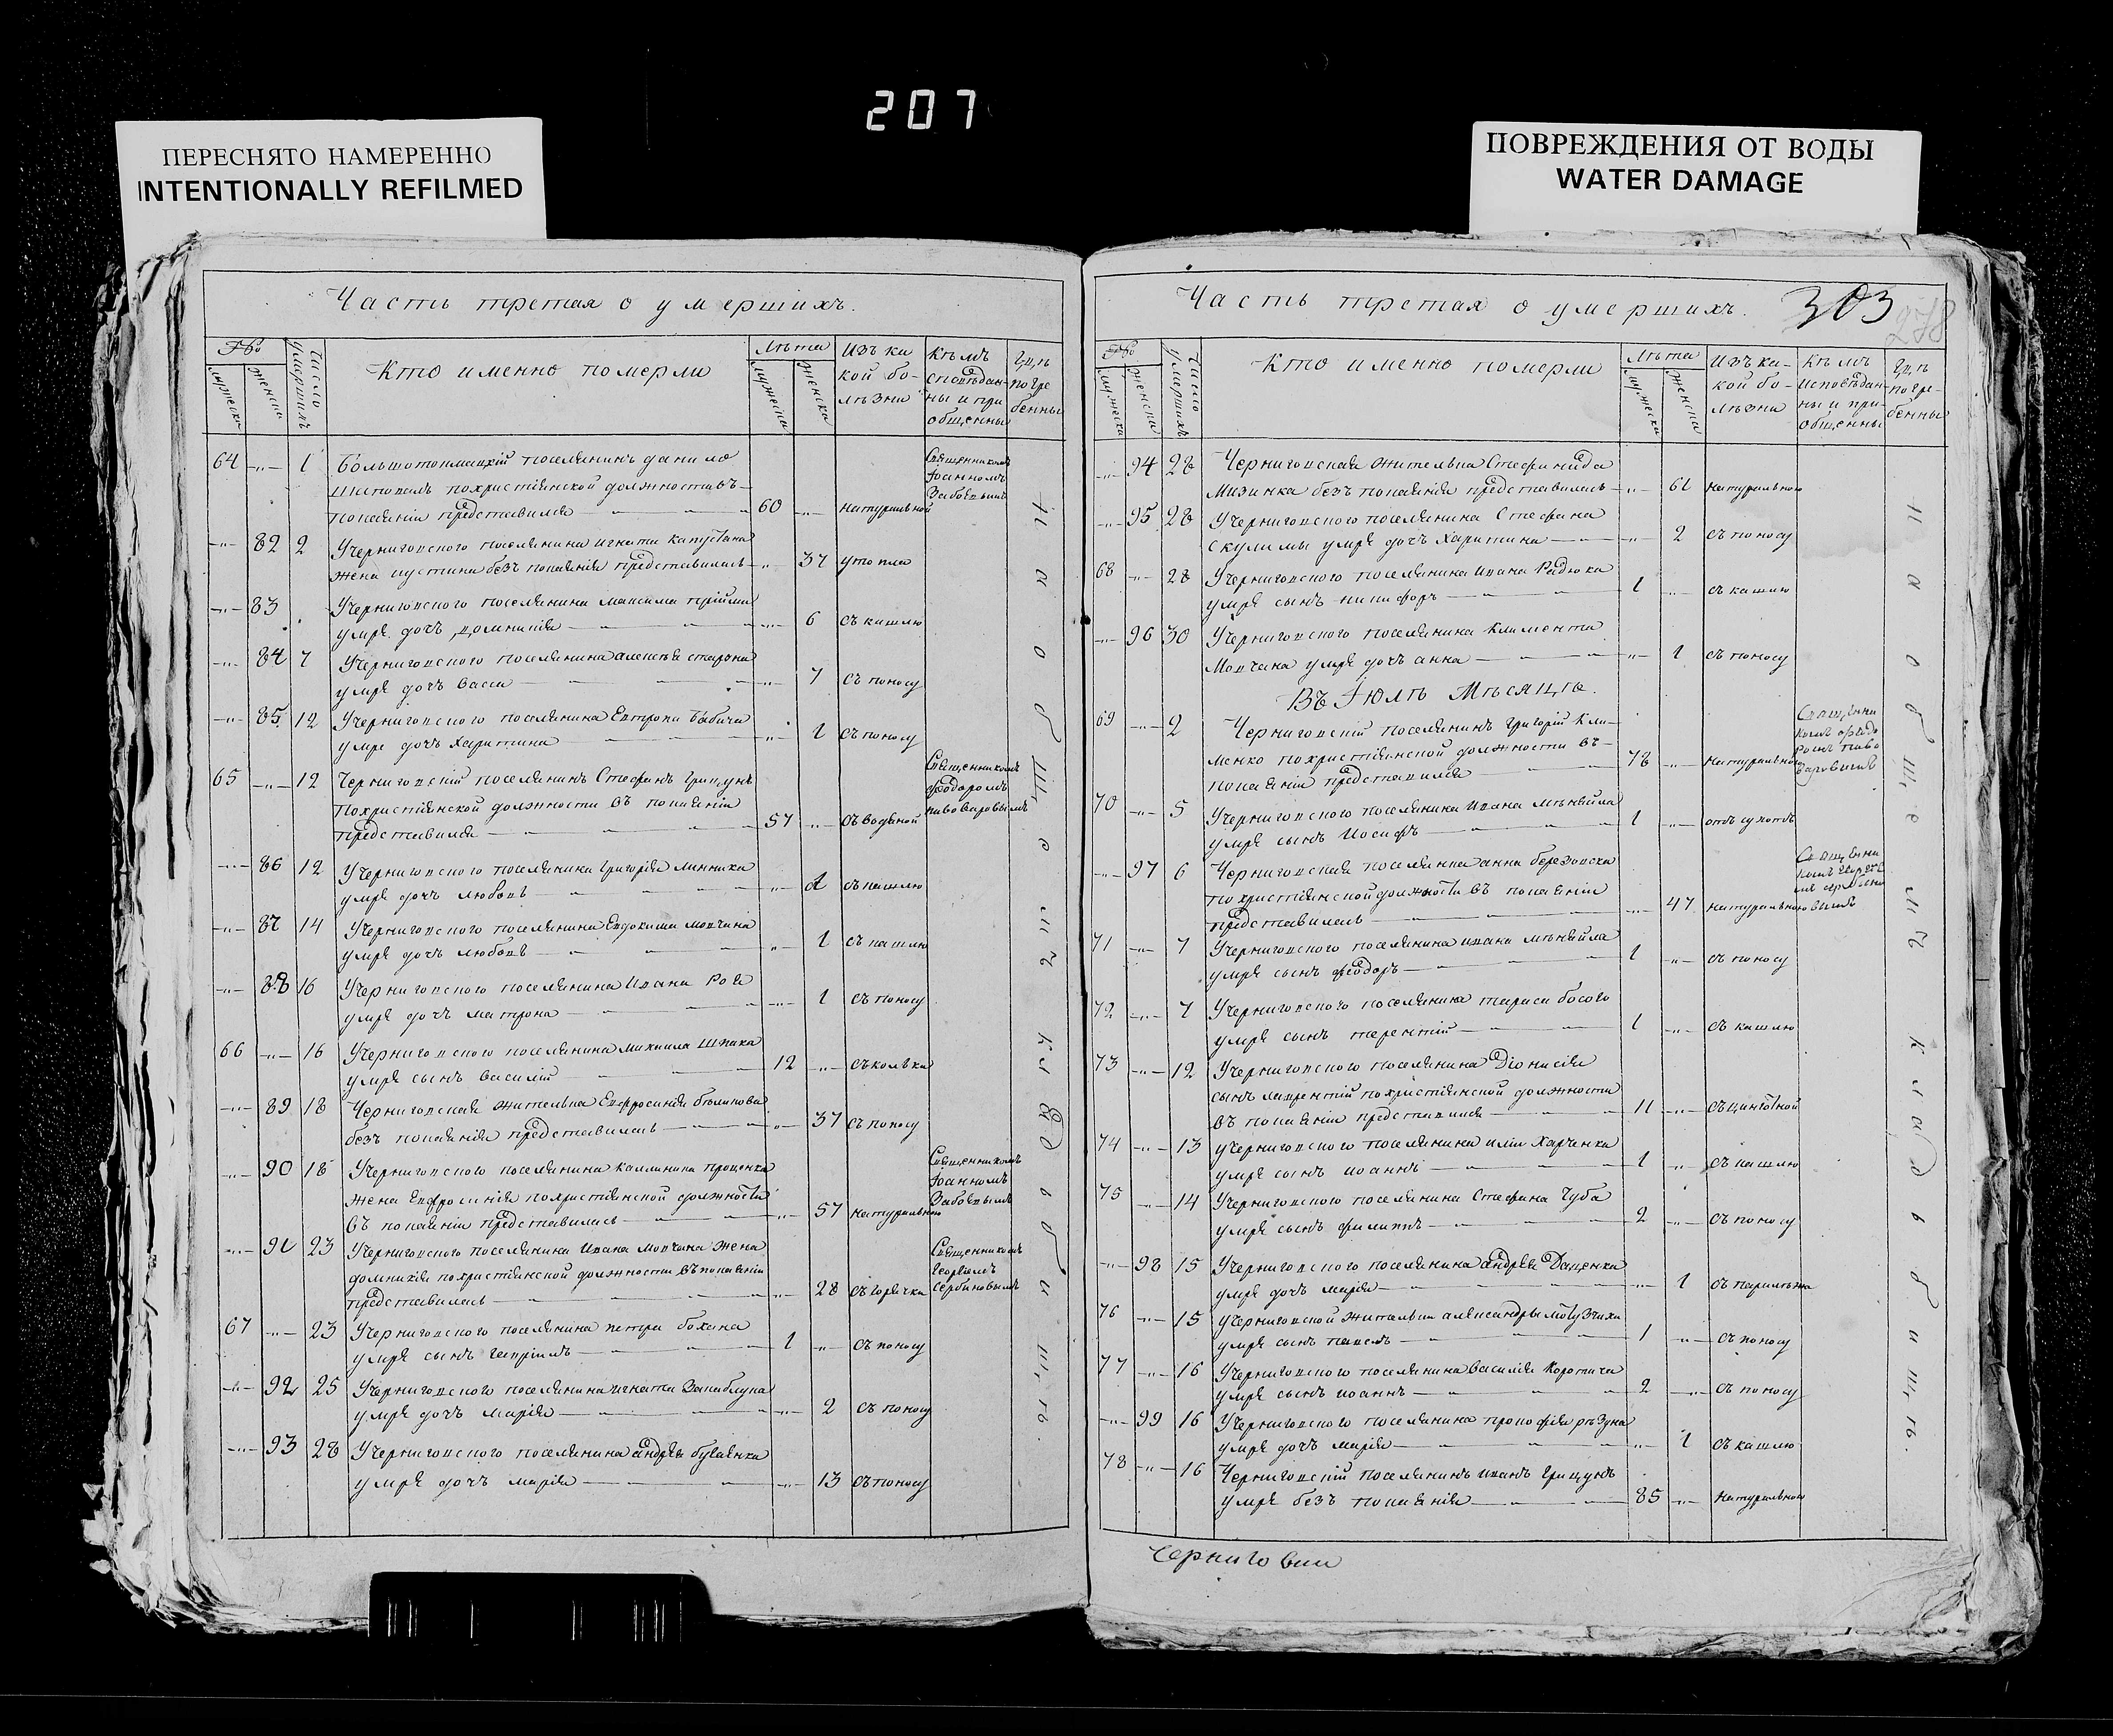 207
ПЕРЕСНЯТО НАМЕРЕННО
INTENTIONALLY REFILMED
ПОВРЕЖДЕНИЯ ОТ ВОДЫ
WATER DAMAGE
Часть третая о умершихъ.
Число умершихъ
Кто именно померли
Лѣта
мужеска
женска
Изъ какой болѣзни
Кѣмъ исповѣданны и приобщенны
Гдѣ погребенны
64 —„— 1 Большотокмацкій поселянинъ Данило
похристіянской должности въ
покаяніи представился 60 —„— натуральной
Священникомъ
Іоанномъ
—„— 82 2 Учерниговского поселянина Игната Капустяна
жена Иустина безъ покаянія представилась —„— 37 утопла
—„— 83 Учерниговского поселянина Максима Пріймы
умре дочь Домникія —„— 6 съ кашлю
—„— 84 7 Учерниговского поселянина Алексѣя
умре дочь Васса —„— 7 съ поносу
—„— 85 12 Учерниговского поселянина Евтропа Бабича
умре дочь Харитина —„— 1 съ поносу
65 —„— 12 Черниговскій поселянинъ Стефанъ Грицунъ
похристіянской должности въ покаяніи
представился 57 —„— съ водяной
Священникомъ
Феодоромъ
Пивоваровымъ
—„— 86 12 Учерниговского поселянина Григорія Линника
умре дочь Любовь —„— съ кашлю
—„— 87 14 Учерниговского поселянина Евдокима Мовчана
умре дочь Любовь —„— 1 съ кашлю
—„— 88 16 Учерниговского поселянина Ивана Роя
умре дочь Матрона —„— 1 съ поносу
66 —„— 16 Учерниговского поселянина Михаила Шпака
умре сынъ Василій 12 —„— съ кольки
—„— 89 18 Черниговская жителька Евфросинія Бѣликова
безъ покаянія представилась —„— 37 съ поносу
—„— 90 18 Учерниговского поселянина Каллиника Проценка
жена Евфросинія похристіянской должности
въ покаяніи представилась —„— 57 натурально
Священникомъ
Іоанномъ
—„— 91 23 Учерниговского поселянина Ивана Мовчана жена
Домникія похристіянской должности въ покаяніи
представилась —„— 28 съ горячки
Священникомъ
Георгіемъ
Сербиновымъ
67 —„— 23 Учерниговского поселянина Петра Бохана
умре сынъ Гавріилъ 1 —„— съ поносу
—„— 92 25 Учерниговского поселянина Игната Запаблука
умре дочь Марія —„— 2 съ поносу
—„— 93 28 Учерниговского поселянина Андрея
умре дочь Марія —„— 13 съ поносу
на общемъ кладбищѣ.
Часть третая о умершихъ.
303
278
Число умершихъ
Кто именно померли
Лѣта
мужеска
женска
Изъ какой болѣзни
Кѣмъ исповѣданны и приобщенны
Гдѣ погребенны
—„— 94 28 Черниговская жителька Стефанида
Мизинка безъ покаянія представилась —„— 61 натурально
—„— 95 28 Учерниговского поселянина Стефана
Скулимы умре дочь Харитина —„— 2 съ поносу
68 —„— 28 Учерниговского поселянина Ивана Радюка
умре сынъ Никифоръ 1 —„— съ кашлю
—„— 96 30 Учерниговского поселянина Климента
Мовчана умре дочь Анна —„— 1 съ поносу
Въ Іюлѣ Мѣсяцѣ.
69 —„— 2 Черниговскій поселянинъ Григорій Кли-
менко похристіянской должности въ
покаяніи представился 78 —„— натурально
Священни
комъ Феодо
ромъ Пиво
варовымъ
70 —„— 5 Учерниговского поселянина Ивана
умре сынъ Иосифъ 1 —„— отъ сухотъ
—„— 97 6 Черниговская поселянка Анна Березовска
похристіянской должности въ покаяніи
представилась —„— 47 натурально
71 —„— 7 Учерниговского поселянина Ивана
умре сынъ Феодоръ 1 —„— съ поносу
72 —„— 7 Учерниговского поселянина Тараса Босого
умре сынъ Терентій 1 —„— съ кашлю
73 —„— 12 Учерниговского поселянина Діонисія
сынъ Лаврентій похристіянской должности
въ покаяніи представился 11 —„— съ цинготной
74 —„— 13 Учерниговского поселянина Иліи Харченка
умре сынъ Иоаннъ 1 —„— съ кашлю
75 —„— 14 Учерниговского поселянина Стефана Чуба
умре сынъ Филиппъ 2 —„— съ поносу
—„— 98 15 Учерниговского поселянина Андрея Даценка
умре дочь Марія —„— 1
76 —„— 15 Учерниговской жительки Александры Мотузчихи
умре сынъ Павелъ 1 —„— съ поносу
77 —„— 16 Учерниговского поселянина Василія Коротича
умре сынъ Иоаннъ 2 —„— съ поносу
—„— 99 16 Учерниговского поселянина Прокофія Рѣзуна
умре дочь Марія —„— 1 съ кашлю
78 —„— 16 Черниговскій поселянинъ Иванъ Грицунъ
умре безъ покаянія 85 —„— натурально
на общемъ кладбищѣ.
Черниговки